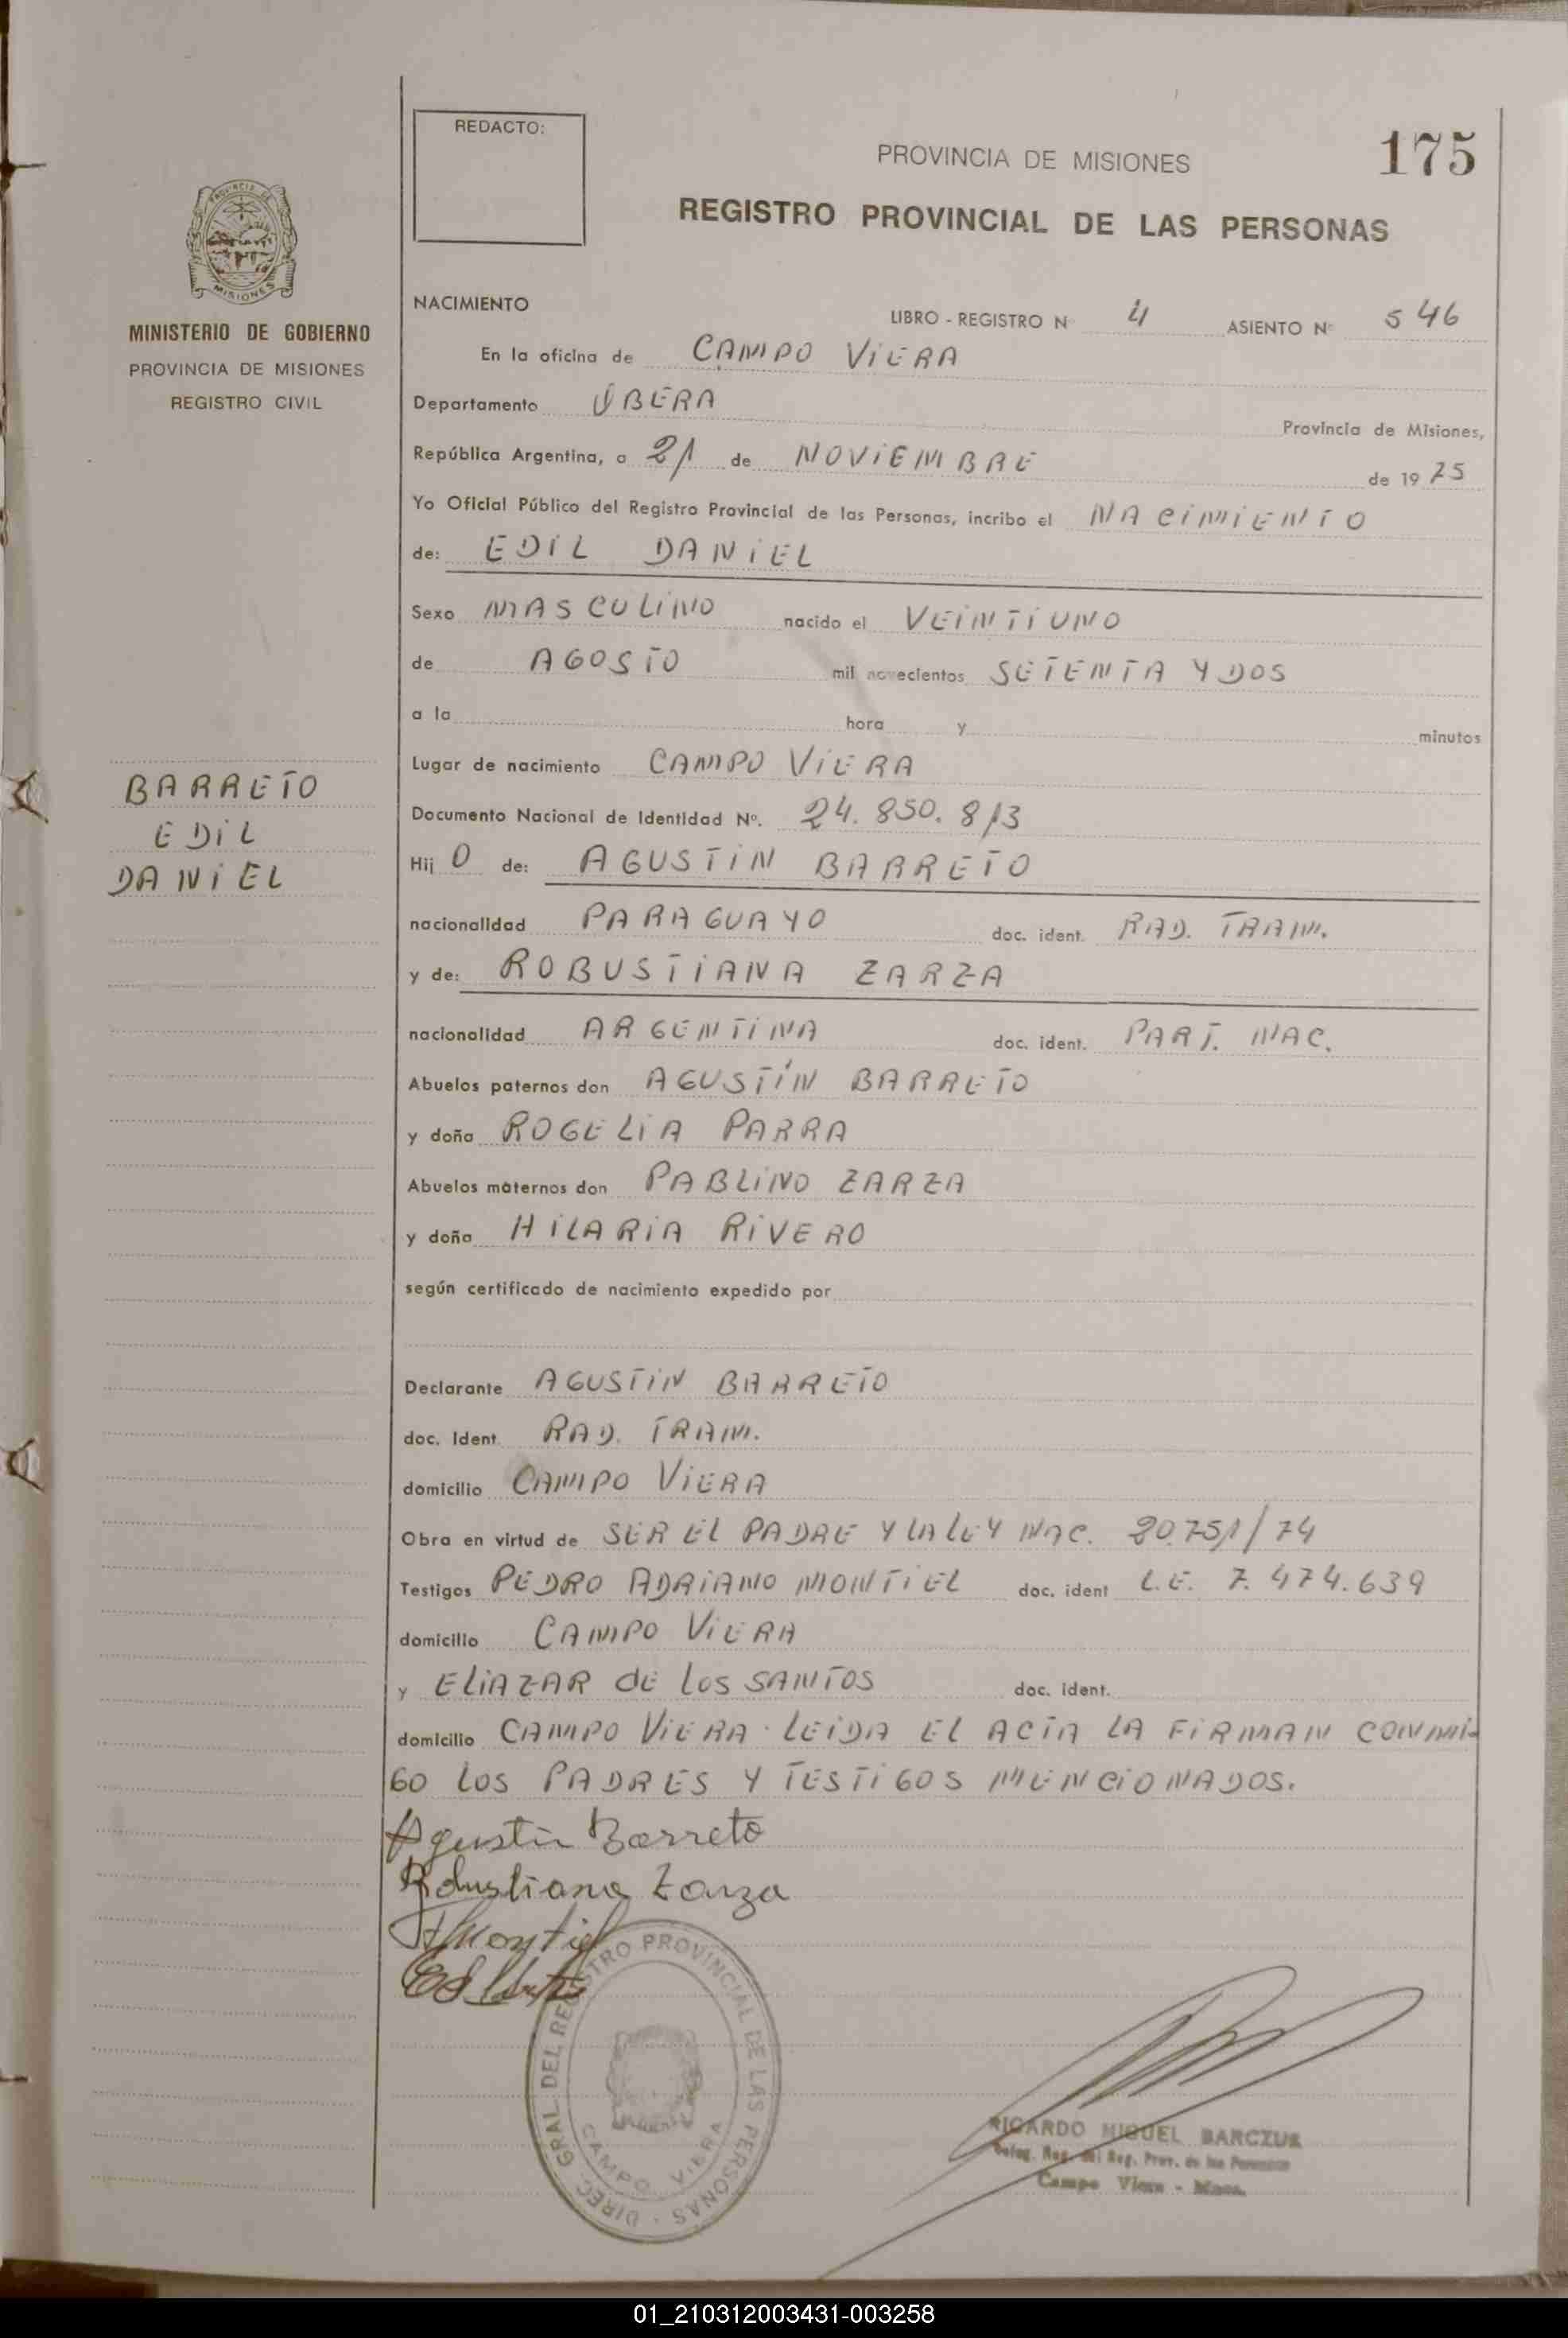 REDACTO:
PROVINCIA DE MISIONES
175
REGISTRO PROVINCIAL DE LAS PERSONAS
MISIONES
MINISTERIO DE GOBIERNO
PROVINCIA DE MISIONES
REGISTRO CIVIL
NACIMIENTO
LIBRO - REGISTRO Nº 4 ASIENTO Nº 546
En la oficina de CAMPO VIERA
Departamento OBERA
Provincia de Misiones,
República Argentina, a 21 de NOVIEMBRE de 1975
Yo Oficial Público del Registro Provincial de las Personas, incribo el NACIMIENTO
de: EDIL DANIEL
Sexo MASCULINO nacido el VEINTIUNO
de AGOSTO mil novecientos SETENTA Y DOS
a la hora y minutos
Lugar de nacimiento CAMPO VIERA
BARRETO
EDIL
DANIEL
Documento Nacional de Identidad Nº. 24.850.813
Hij O de: AGUSTIN BARRETO
nacionalidad PARAGUAYO doc. ident. RAD. TRAM.
y de: ROBUSTIANA ZARZA
nacionalidad ARGENTINA doc. ident. PART. NAC.
Abuelos paternos don AGUSTÍN BARRETO
y doña ROGELIA PARRA
Abuelos maternos don PABLINO ZARZA
y doña HILARIA RIVERO
según certificado de nacimiento expedido por
Declarante AGUSTIN BARRETO
doc. Ident RAD. TRAM.
domicilio CAMPO VIERA
Obra en virtud de SER EL PADRE Y LA LEY NAC. 20.751/74
Testigos PEDRO ADRIANO MONTIEL doc. ident L.E. 7.474.639
domicilio CAMPO VIERA
y ELIAZAR de los SANTOS doc. ident.
domicilio CAMPO VIERA. LEIDA EL ACTA LA FIRMAN CONMI-
GO LOS PADRES Y TESTIGOS MENCIONADOS.
Agustin Barreto
Robustiana Zarza
Montiel
DIREC. GRAL. DEL REGISTRO PROVINCIAL DE LAS PERSONAS
CAMPO VIERA
RICARDO MIGUEL BARCZUK
Deleg. Reg. del Reg. Prov. de las Personas
Campo Viera - Mnes.
01_210312003431-003258